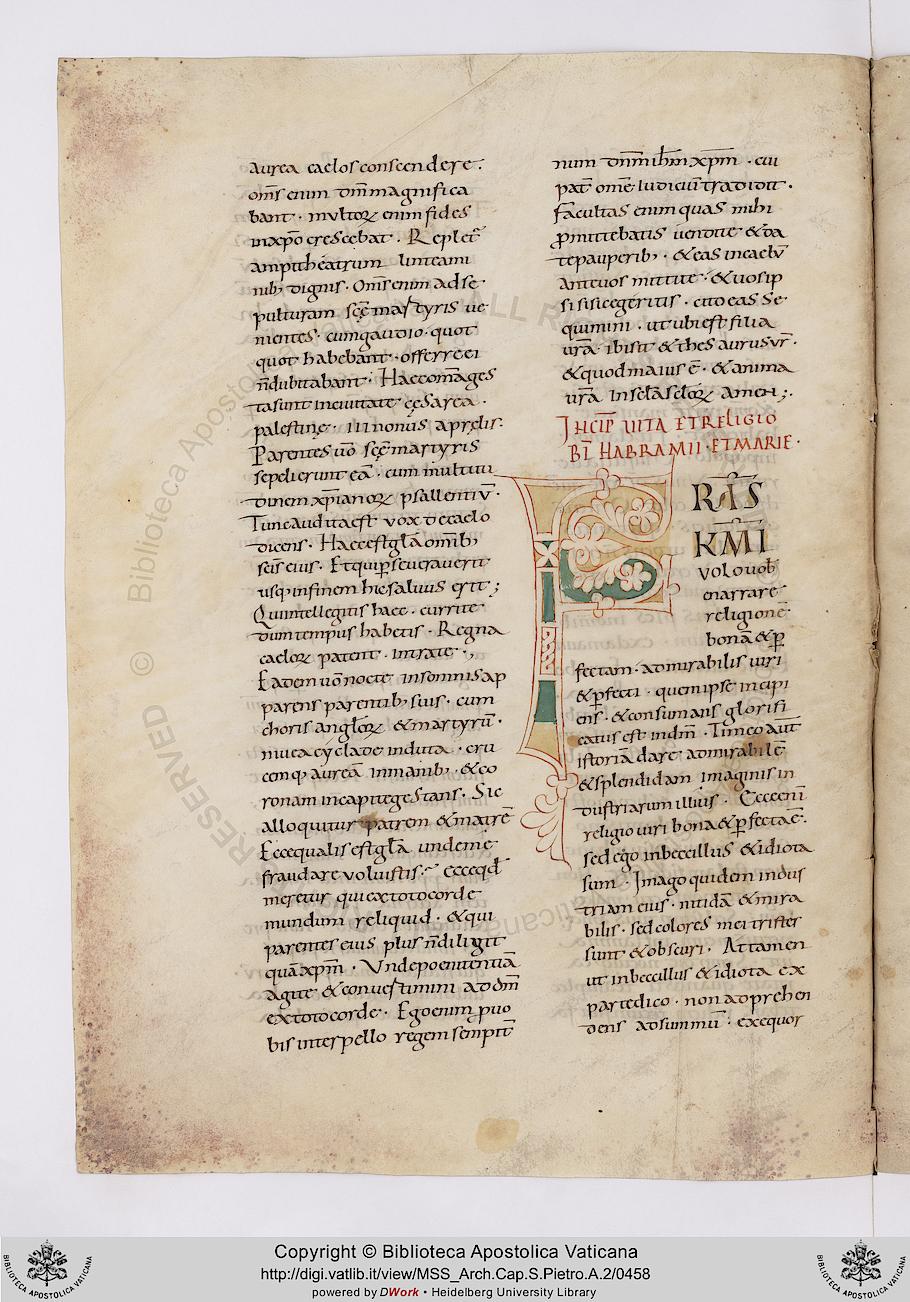 aurea caelos conscendere.
om̄s enim dn̄m magnifica
bant. multorꝝ enim fides
in xp̄o crescebat. Replet̄
ampitheatrum linteami
nib; dignis. Om̄s enim ad se
pulturam sc̄ę martyris ue
nientes. cum gaudio. quot
quot habebant. offerre ei
n̄ dubitabant. Haec om̄a ges
ta sunt in ciuitate cęsarea.
palestinę. iii nonus aprelis.
Parentes ũo sc̄ę martyris
sepelierunt eā. cum multitu
dinem xp̄ianorꝝ psallentiū.
Tunc audita est vox de caelo
dicens. Haec est gl̄a omīb;
sc̄is eius. Et qui pseuerauerit
usq; in finem hic saluus erit;
Qui intellegitis haec. currite
dum tempus habetis. Regna
caelorꝝ patent. intrate.,
Eadem ũo nocte in somnis ap
parens parentib; suis. cum
choris angl̄orꝝ & martyrū.
niuea cyclade induta. cru
cemq; aureā in manib; & co
ronam in capite gestans. Sic
alloquitur patrem & matrē
Ecce qualis est gl̄a unde me
fraudare voluistis. ecce qd̄
meretur qui ex toto corde
mundum reliquid. & qui
parentes eius plus n̄ diligit
quā xp̄m. Unde poenitentiā
agite & conuertimini ad dm̄
ex toto corde. Ego enim p uo
bis interpello regem sempit̄
num dn̄m ih̄m xp̄m. cui
pat̄ om̄e iudiciū tradidit.
facultas enim quas mihi
ꝓmittebatis uendite & da
te pauperib;. & eas in caelū
ante uos mittite. & uos ip
si si sic egeritis. cito eas se
quimini. ut ubi est filia
ur̄a. ibi sit & thesaurus ur̄.
& quod maius ē. & anima
ur̄a in sc̄la sc̄lorꝝ amen;.
INCIP̄ UITA ET RELIGIO
BI HABRAMII. ET MARIE.
FRĀS
KM̄I
volo uob̄
enarrare
religionē
bonā & ꝑ
fectam. admirabilis uiri
& ꝑfecti. quem ipse incipi
ens. & consumans glorifi
catus est in dn̄o. Timeo aūt
istoriā dare admirabilē
& splendidam imaginis in
dustriarum illius. Ecce eni
religio uiri bona & ꝑfecta ē.
sed ego inbecillus & idiota
sum. Imago quidem indus
triam eius. nitidā & mira
bilis. sed colores mei tristes
sunt & obscuri. Attamen
ut inbecillus & idiota ex
parte dico. non adprehen
dens ad summū. exequor
Copyright © Biblioteca Apostolica Vaticana
http://digi.vatlib.it/view/MSS_Arch.Cap.S.Pietro.A.2/0458
powered by DWork • Heidelberg University Library